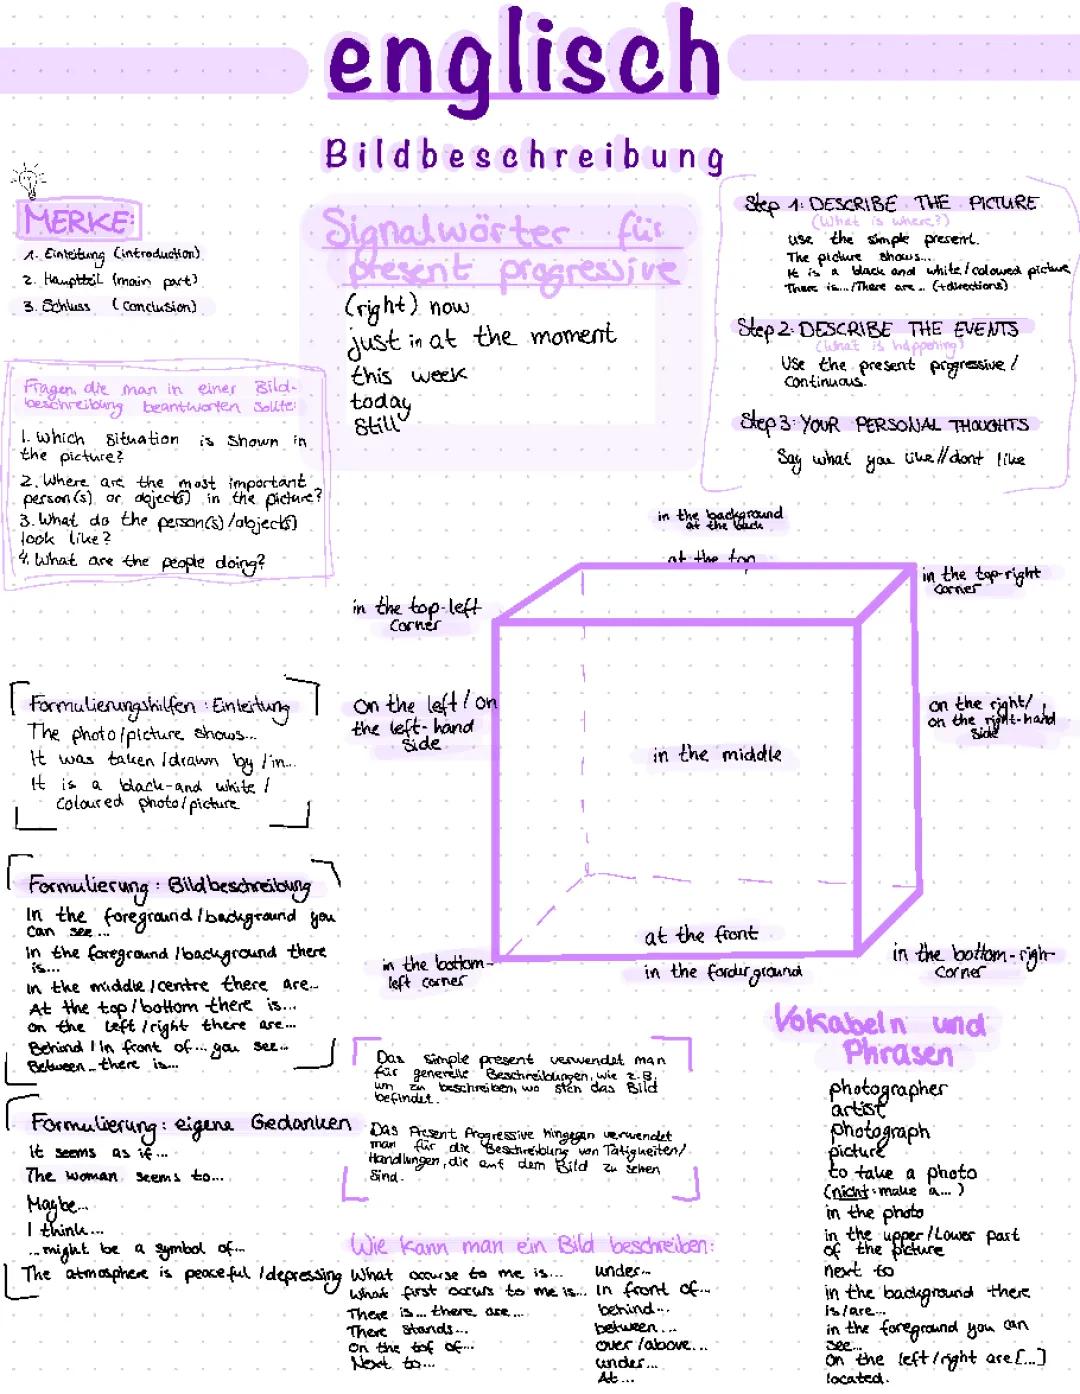 englisch
Bildbeschreibung
MERKE:
1. Einleitung (introduction)
2. Hauptteil (main part)
3. Schluss (conclusion)
Signalwörter für
present progressive
(right) now
just in at the moment
this week
today
still
Step 1: DESCRIBE THE PICTURE
(What is where?)
use the simple present.
The picture shows...
it is a black and white/coloured picture
There is.../There are... (+directions)
Step 2: DESCRIBE THE EVENTS
(What is happening)
Use the present progressive /
continuous.
Step 3: YOUR PERSONAL THOUGHTS
Say what you like//dont like
Fragen, die man in einer Bild-
beschreibung beantworten sollte:
1. Which situation is shown in
the picture?
2. Where are the most important
person(s) or object(s) in the picture?
3. What do the person(s)/object(s)
look like?
4. What are the people doing?
in the background
at the back
at the top
in the top-left
corner
in the top-right
corner
on the left / on
the left-hand
side
in the middle
on the right/
on the right-hand
side
at the front
in the bottom-
left corner
in the forderground
in the bottom-righ
corner
Formulierungshilfen: Einleitung
The photo/picture shows...
It was taken/drawn by/in...
It is a black-and white /
coloured photo/picture
Formulierung: Bildbeschreibung
In the foreground/background you
can see...
in the foreground/background there
is...
in the middle/centre there are...
At the top/bottom there is...
on the left/right there are...
Behind/In front of... you see...
Between... there is...
Formulierung: eigene Gedanken
it seems as if...
The woman seems to...
Maybe...
I think...
...might be a symbol of...
The atmosphere is peaceful/depressing
Das simple present verwendet man
für generelle Beschreibungen, wie z.B.
um zu beschreiben, wo sich das Bild
befindet.
Das Present Progressive hingegen verwendet
man für die Beschreibung von Tätigkeiten/
Handlungen, die auf dem Bild zu sehen
sind.
Wie kann man ein Bild beschreiben:
What occurse to me is...
What first occurs to me is...
There is... there are...
There stands...
On the tof of...
Next to...
under...
in front of...
behind...
between...
over/above...
under...
At...
Vokabeln und
Phrasen
photographer
artist
photograph
picture
to take a photo
(nicht: make a...)
in the photo
in the upper/Lower part
of the picture
next to
in the background there
is/are...
in the foreground you can
see...
On the left/right are [...]
located.